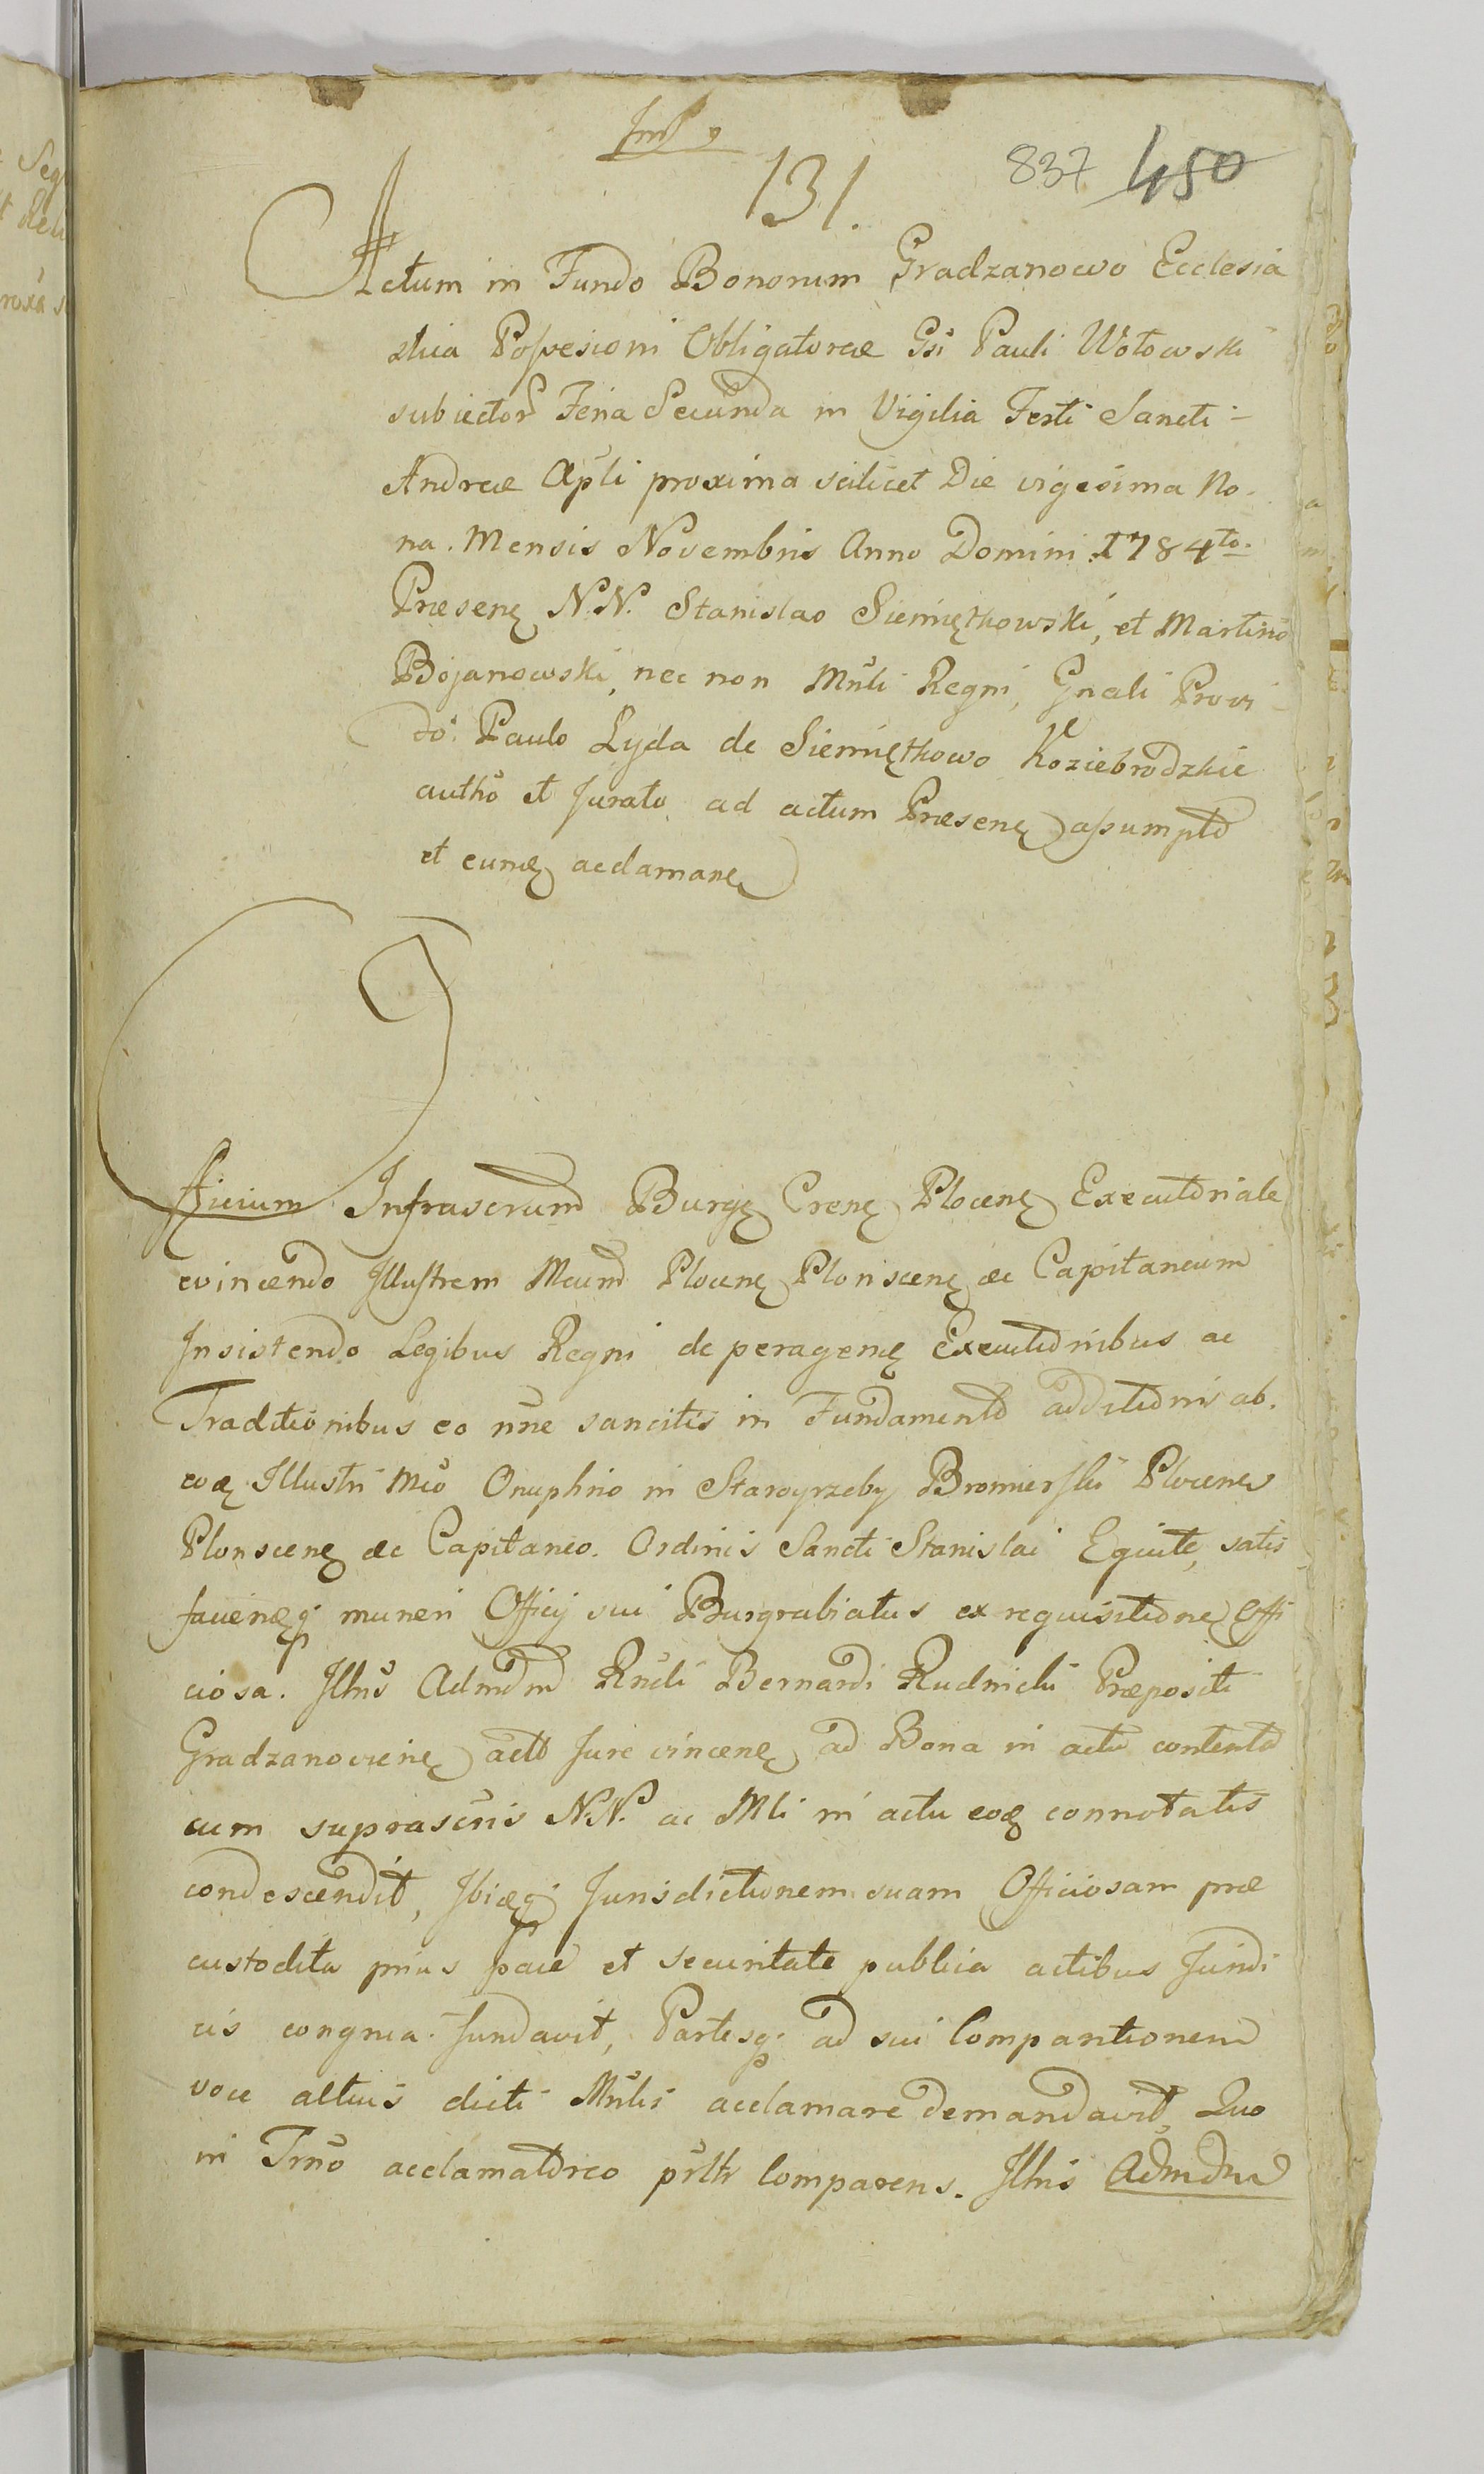 131.
837 450
Actum in Fundo Bonorum Gradzanowo Ecclesia
stica Possesioni Obligatoriae Gsi Pauli Wołowski
subiector Feria Secunda in Vigilia Festi Sancti -
Andreae Apli proxima scilicet Die vigesima No.
na. Mensis Novembris Anno Domini 1784to.
Praesenę N.N. Stanislao Siemiątkowski, et Martino
Bojanowski, nec non Mnli Regni, Gnali Provi
do Paulo Lyda de Siemiątkowo Koziebrodzkie
autho et Jurato, ad actum Praesenę assumpto
et eumę acclamanę
Officium Infrascrum Burgę Crenę Plocenę Executoriale
evincendo Illustrem Mcum Plocenę Plonscenę ac Capitaneum
Insistendo Legibus Regni de peragenę Executionibus ac
Traditionibus eo nne sancitis in Fundamento additionis ab.
eoę Illustri Mco Onuphrio in Starogrzeby Bromierski Plocenę
Plonscenę ac Capitaneo. Ordinis Sancti Stanislai Equite, satis
facienęq muneri Officij sui Burgrabiatus ex requisitione Offi
ciosa. Illris Admdm Rndi Bernardi Rudnicki Praepositi
Gradzanovienę acto Jure vincenę ad Bona in actu contenta
cum suprascris N.N. ac Mli in actu eoę connotatis
condescendit, Ibięq Jurisdictionem suam Officiosam prae
custodita prius pace et securitate publica actibus Juridi
cis congrua. fundavit, Partesq ad sui Comparitionem
voce altius dicti Mnlis acclamare demandavit, Quo
in Trno acclamatoreo prltr Comparens. Illris Admdm